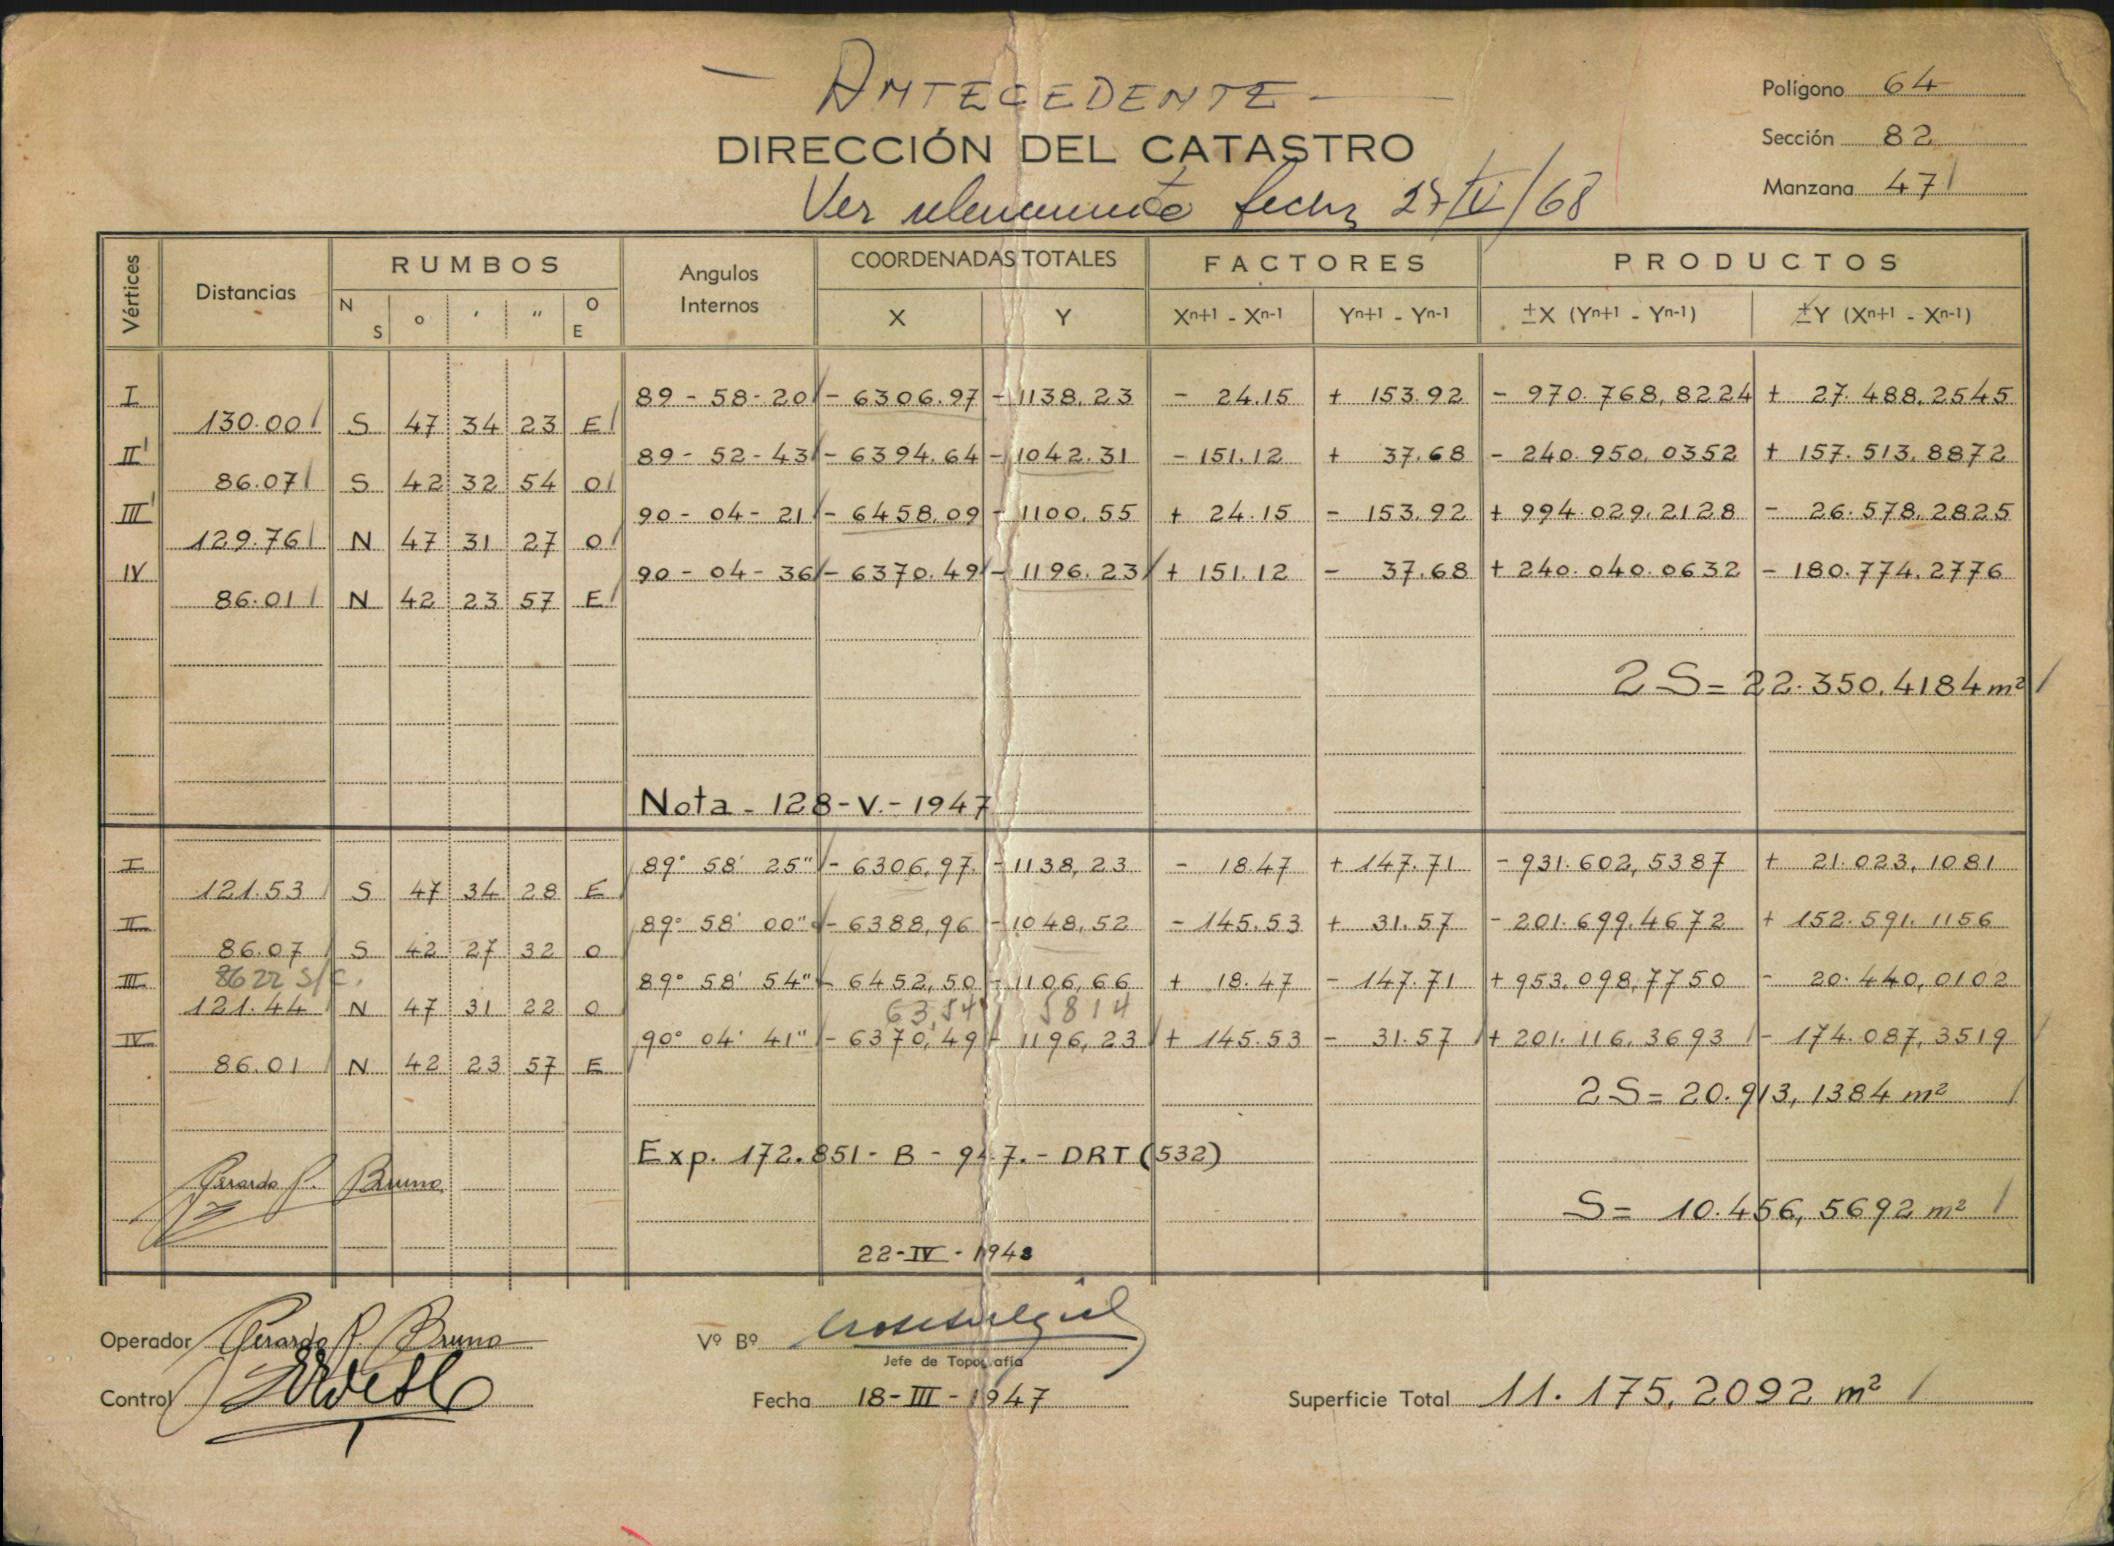 — ANTECEDENTE —
Polígono 64
DIRECCIÓN DEL CATASTRO
Sección 82
Manzana 47
Ver relevamiento fecha 27/IV/68
Vértices Distancias RUMBOS Angulos Internos COORDENADAS TOTALES FACTORES PRODUCTOS
N S ° ' " O E X Y Xn+1 - Xn-1 Yn+1 - Yn-1 ±X (Yn+1 - Yn-1) ±Y (Xn+1 - Xn-1)
I 89 - 58 - 20 - 6306.97 - 1138.23 - 24.15 + 153.92 - 970.768,8224 + 27.488,2545
130.00 S 47 34 23 E
II' 89 - 52 - 43 - 6394.64 - 1042.31 - 151.12 + 37.68 - 240.950,0352 + 157.513,8872
86.07 S 42 32 54 O
III' 90 - 04 - 21 - 6458.09 - 1100.55 + 24.15 - 153.92 + 994.029,2128 - 26.578,2825
129.76 N 47 31 27 O
IV 90 - 04 - 36 - 6370.49 - 1196.23 + 151.12 - 37.68 + 240.040.0632 - 180.774.2776
86.01 N 42 23 57 E
2 S = 22.350,4184 m²
Nota - 128 - V. - 1947
I 89° 58' 25" - 6306,97 - 1138,23 - 18.47 + 147.71 - 931.602,5387 + 21.023,1081
121.53 S 47 34 28 E
II 89° 58' 00" - 6388,96 - 1048,52 - 145.53 + 31.57 - 201.699.4672 + 152.591.1156
86.07 S 42 27 32 O
III 8622 S/C. 89° 58' 54" - 6452,50 - 1106,66 + 18.47 - 147.71 + 953.098,7750 - 20.440,0102
121.44 N 47 31 22 O 63,54 5814
IV 90° 04' 41" - 6370,49 - 1196,23 + 145.53 - 31.57 + 201.116,3693 - 174.087,3519
86.01 N 42 23 57 E
2 S = 20.913,1384 m²
Exp. 172.851 - B - 947. - DRT (532)
Gerardo P. Bruno
S = 10.456,5692 m²
22 - IV - 1948
Operador Gerardo P. Bruno
Vº Bº
Jefe de Topografía
Control
Fecha 18 - III - 1947
Superficie Total 11.175,2092 m²